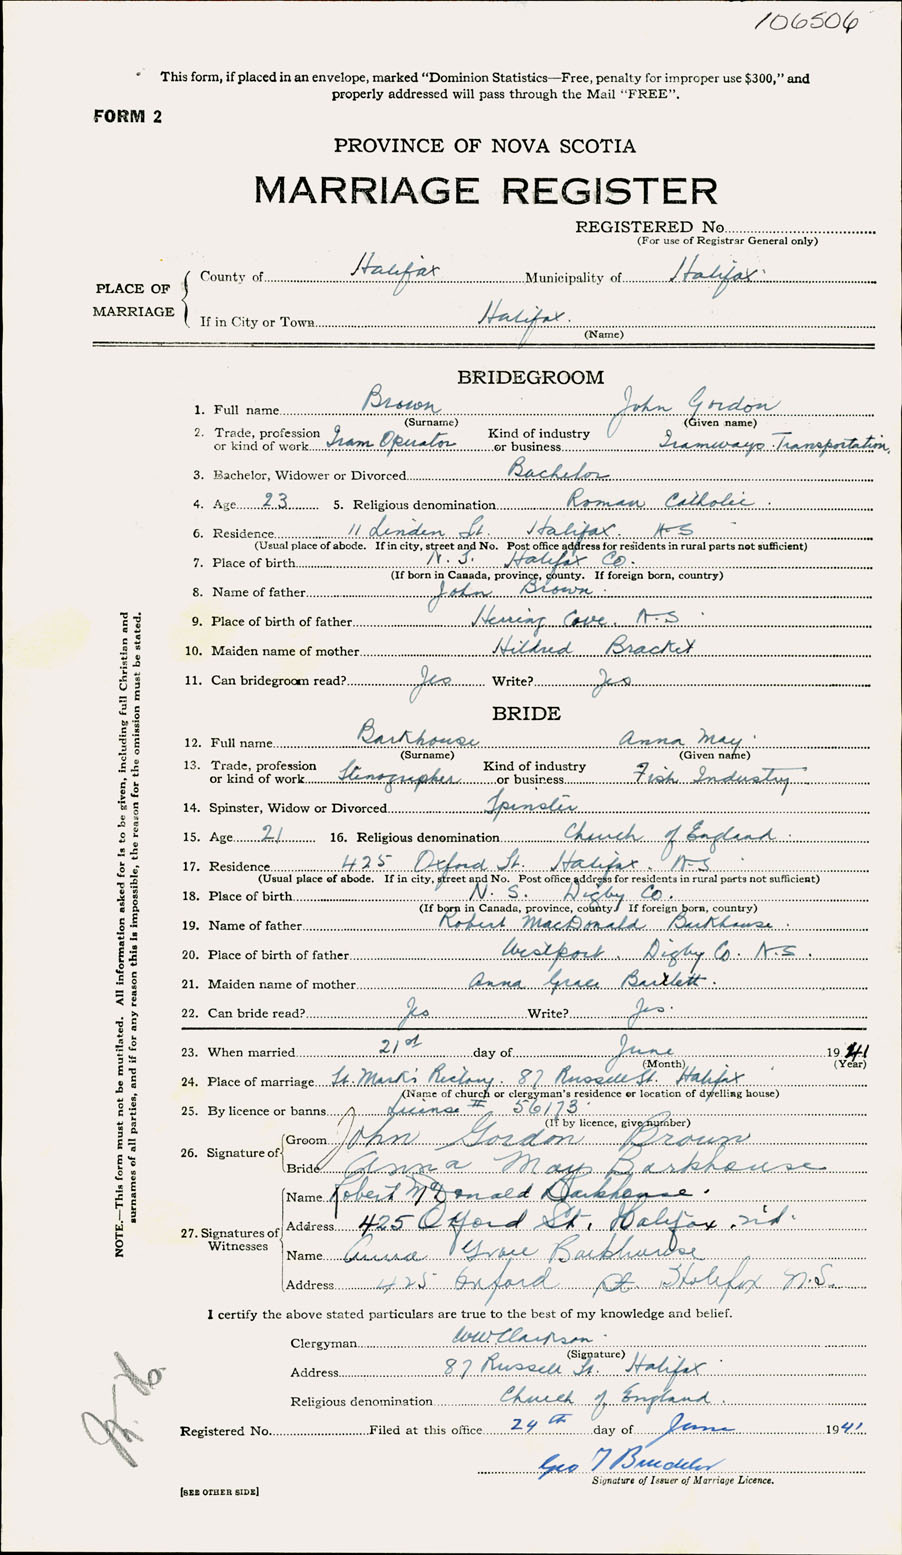 106506
This form, if placed in an envelope, marked “Dominion Statistics—Free, penalty for improper use $300,” and
properly addressed will pass through the Mail “FREE”.
FORM 2
PROVINCE OF NOVA SCOTIA
MARRIAGE REGISTER
REGISTERED No
(For use of Registrar General only)
PLACE OF MARRIAGE
County of Halifax Municipality of Halifax.
If in City or Town Halifax.
(Name)
BRIDEGROOM
1. Full name Brown John Gordon
(Surname) (Given name)
2. Trade, profession or kind of work Tram Operator Kind of industry or business Tramways Transportation,
3. Bachelor, Widower or Divorced Bachelor
4. Age 23 5. Religious denomination Roman Catholic.
6. Residence 11 Linden St. Halifax. N S
(Usual place of abode. If in city, street and No. Post office address for residents in rural parts not sufficient)
7. Place of birth N. S. Halifax Co.
(If born in Canada, province, county. If foreign born, country)
8. Name of father John Brown.
9. Place of birth of father Herring Cove. N.S.
10. Maiden name of mother Hildred Bracket
11. Can bridegroom read? Yes Write? Yes
BRIDE
12. Full name Barkhouse Anna May.
(Surname) (Given name)
13. Trade, profession or kind of work Stenographer Kind of industry or business Fish Industry
14. Spinster, Widow or Divorced Spinster
15. Age 21 16. Religious denomination Church of England.
17. Residence 425 Oxford St. Halifax. N S
(Usual place of abode. If in city, street and No. Post office address for residents in rural parts not sufficient)
18. Place of birth N. S. Digby Co.
(If born in Canada, province, county. If foreign born, country)
19. Name of father Robert MacDonald Barkhouse.
20. Place of birth of father Westport. Digby Co. N.S.
21. Maiden name of mother Anna Grace Bartlett.
22. Can bride read? Yes Write? Yes.
23. When married 21st day of June 1941
(Month) (Year)
24. Place of marriage St. Mark's Rectory. 87 Russell St. Halifax
(Name of church or clergyman's residence or location of dwelling house)
25. By licence or banns License # 56173
(If by licence, give number)
26. Signature of
Groom John Gordon Brown
Bride Anna May Barkhouse
27. Signatures of Witnesses
Name Robert McDonald Barkhouse.
Address 425 Oxford St. Halifax
Name Anna Grace Barkhouse
Address 425 Oxford St Halifax N.S.
I certify the above stated particulars are true to the best of my knowledge and belief.
Clergyman WW. Clarkson.
(Signature)
Address 87 Russell St. Halifax
Religious denomination Church of England.
Registered No. Filed at this office 24th day of June 1941
Geo T
Signature of Issuer of Marriage Licence.
[SEE OTHER SIDE]
NOTE.—This form must not be mutilated. All information asked for is to be given, including full Christian and
surnames of all parties, and if for any reason this is impossible, the reason for the omission must be stated.